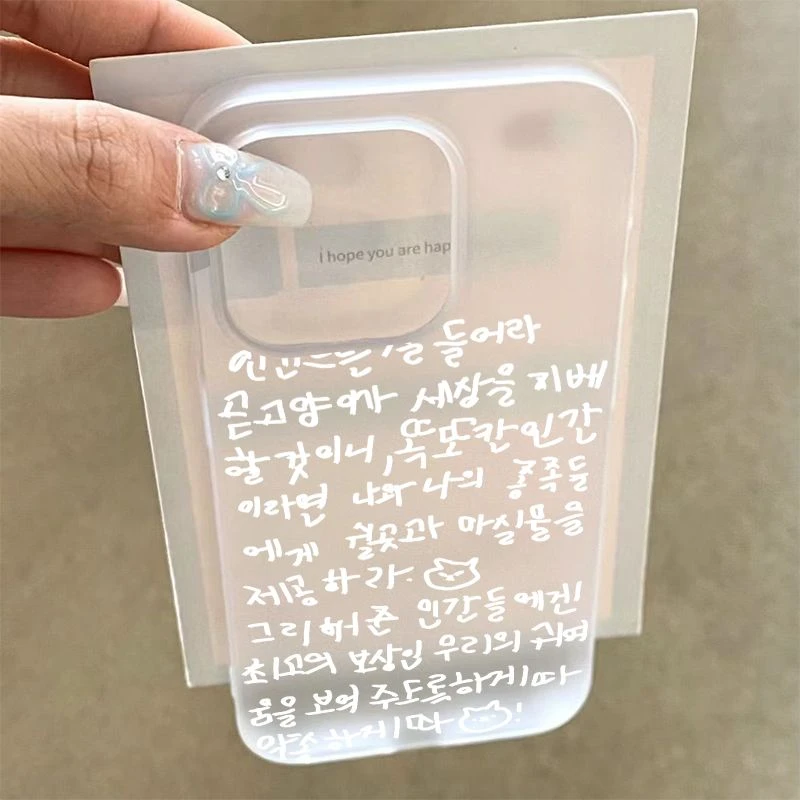 i hope you are hap
들어라
곧 고양이가 세상을 지배
할 것이니, 똑또칸 인간
이라면 나와 나의 종족들
에게 쉴곳과 마실물을
제공하라.
그리해준 인간들에겐
최고의 보상인 우리의 귀여
움을 보여 주도록하게따
약속하게따 !